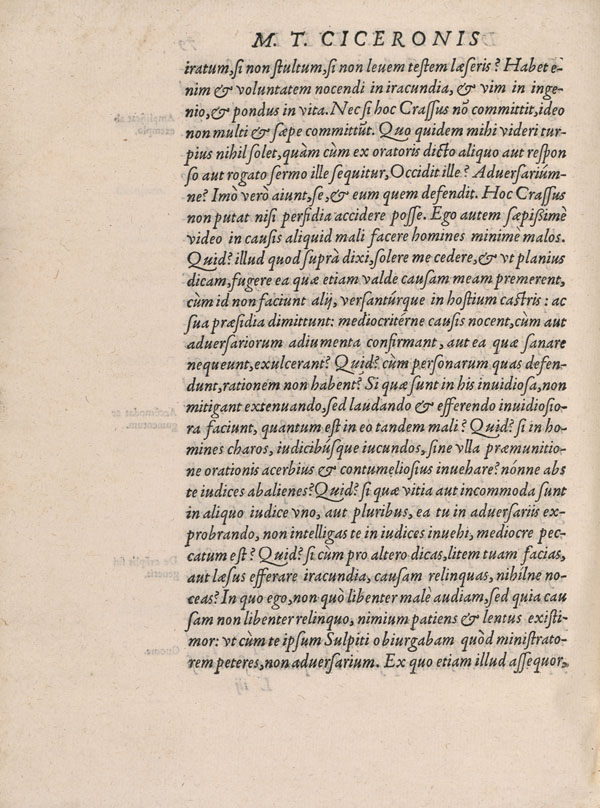 M. T. CICERONIS
iratum, si non stultum, si non leuem testem læseris? Habet e-
nim & voluntatem nocendi in iracundia, & vim in inge-
nio, & pondus in vita. Nec si hoc Crassus nō committit, ideo
non multi & sæpe committūt. Quo quidem mihi videri tur-
pius nihil solet, quàm cùm ex oratoris dicto aliquo aut respon
so aut rogato sermo ille sequitur, Occidit ille? Aduersariúm-
ne? Imò verò aiunt, se, & eum quem defendit. Hoc Crassus
non putat nisi perfidia accidere posse. Ego autem sæpissimè
video in causis aliquid mali facere homines minime malos.
Quid? illud quod suprà dixi, solere me cedere, & vt planius
dicam, fugere ea quæ etiam valde causam meam premerent,
cùm id non faciunt alij, versantúrque in hostium castris: ac
sua præsidia dimittunt: mediocritérne causis nocent, cùm aut
aduersariorum adiumenta confirmant, aut ea quæ sanare
nequeunt, exulcerant? Quid? cùm personarum quas defen-
dunt, rationem non habent? Si quæ sunt in his inuidiosa, non
mitigant extenuando, sed laudando & efferendo inuidiosio-
ra faciunt, quantum est in eo tandem mali? Quid? si in ho-
mines charos, iudicibúsque iucundos, sine vlla præmunitio-
ne orationis acerbius & contumeliosius inuehare? nónne abs
te iudices abalienes? Quid? si quæ vitia aut incommoda sunt
in aliquo iudice vno, aut pluribus, ea tu in aduersariis ex-
probrando, non intelligas te in iudices inuehi, mediocre pec-
catum est? Quid? si cùm pro altero dicas, litem tuam facias,
aut læsus efferare iracundia, causam relinquas, nihilne no-
ceas? In quo ego, non quò libenter malè audiam, sed quia cau
sam non libenter relinquo, nimium patiens & lentus existi-
mor: vt cùm te ipsum Sulpiti obiurgabam quòd ministrato-
rem peteres, non aduersarium. Ex quo etiam illud assequor,